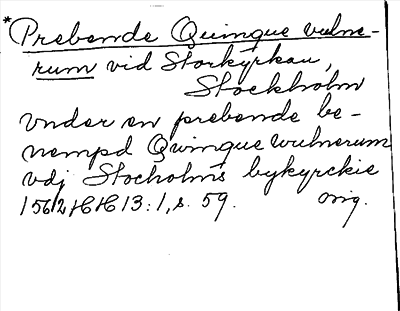 *Prebende Quinque vulne-
rum vid Storkyrkan,
Stockholm
Vnder en prebende be-
nempd Quinque wulnerum
vdj Stocholms bykyrckie
1562 HH 13:1, s. 59. orig.